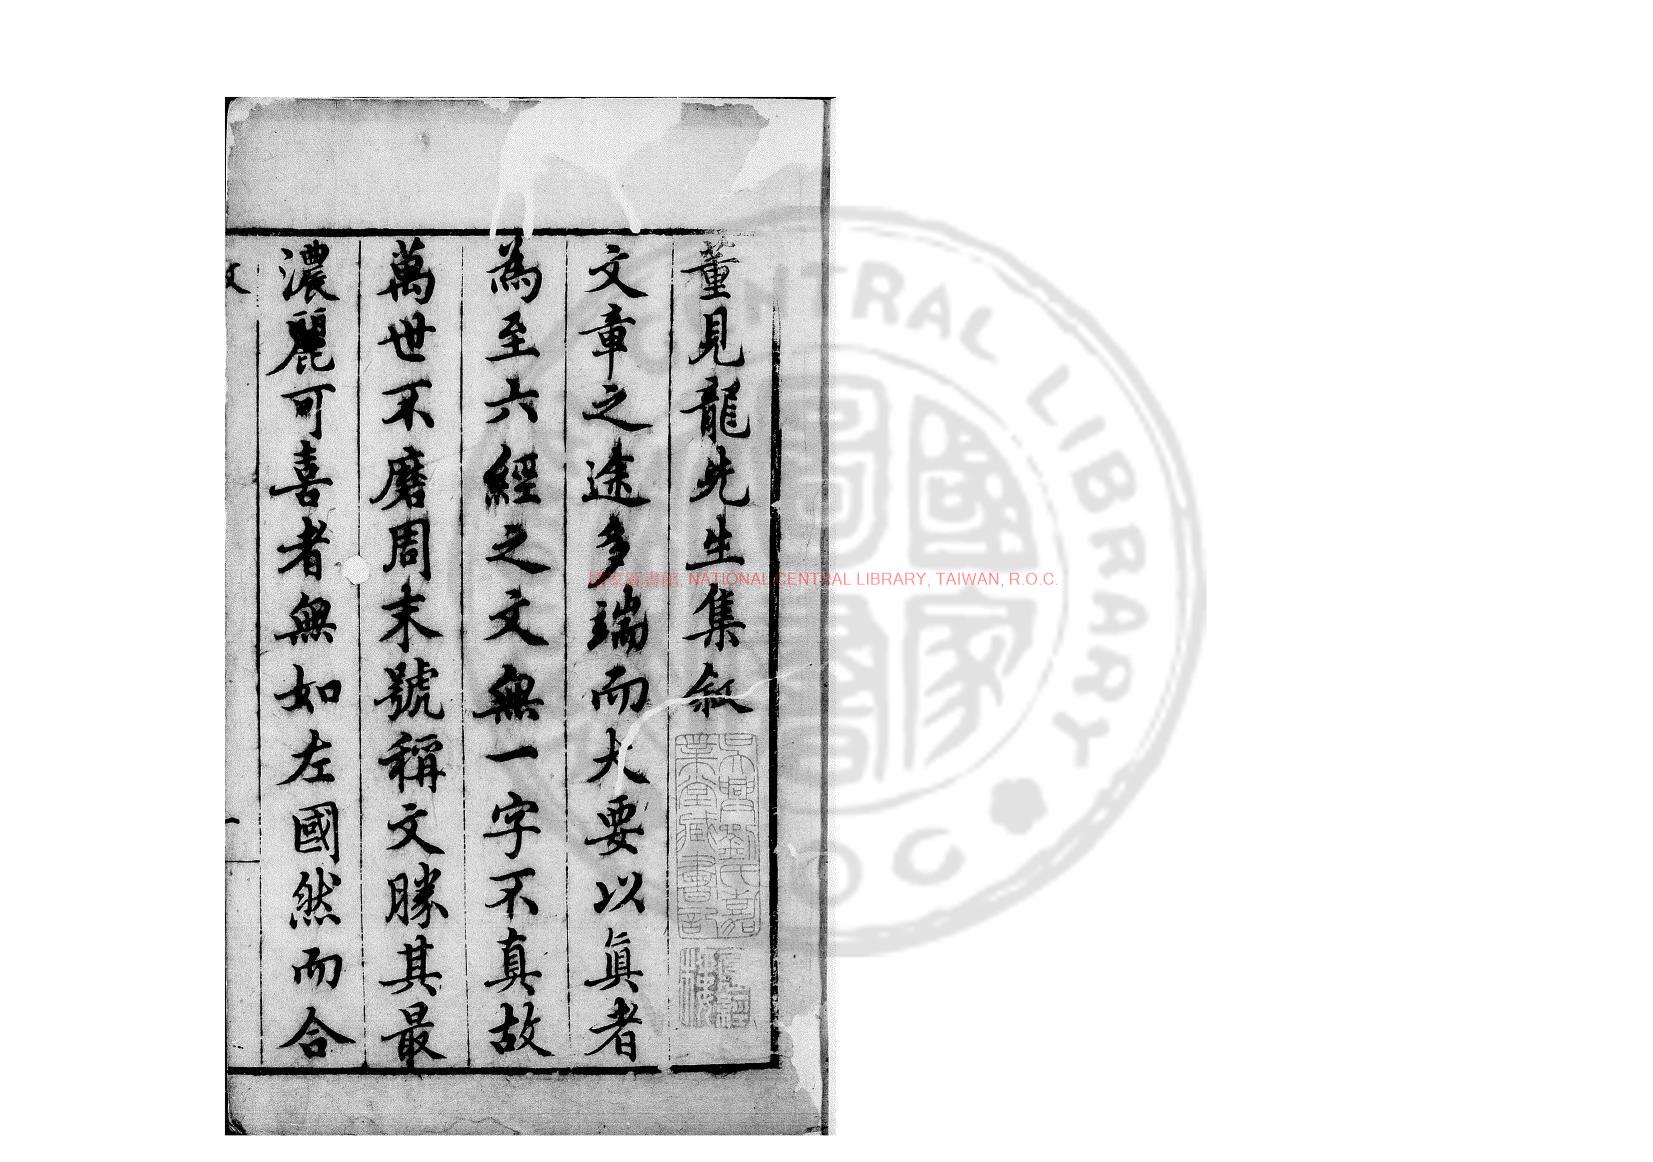 董見龍先生集叙
文章之途多端而大要以眞者
為至六經之文無一字不真故
萬世不磨周末號稱文勝其最
濃麗可喜者無如左國然而合
吳興劉氏嘉
業堂藏書記
國家圖書館 NATIONAL CENTRAL LIBRARY, TAIWAN, R.O.C.
CENTRAL LIBRARY